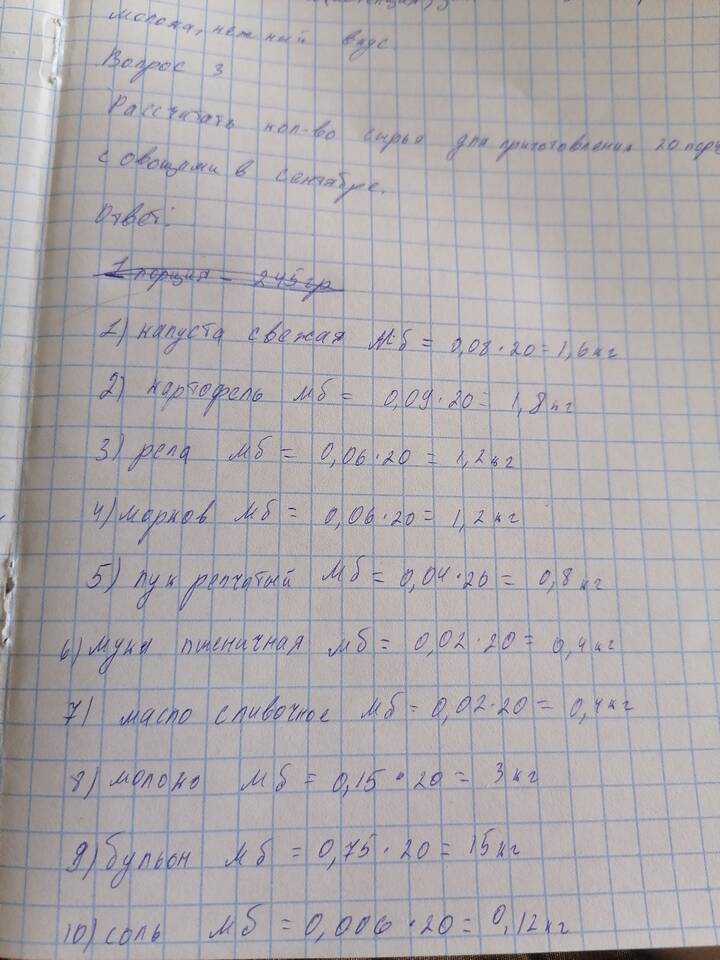 молока, нежный вкус.
Вопрос 3
Рассчитать кол-во сырья для приготовления 20 порц
с овощами в сентябре.
Ответ:
1 порция - 245 гр
1) капуста свежая Мб = 0,08·20=1,6кг
2) картофель Мб = 0,09·20= 1,8кг
3) репа Мб = 0,06·20 = 1,2кг
4) морков Мб = 0,06·20= 1,2кг
5) лук репчатый Мб = 0,04·20= 0,8кг
6) мука пшеничная Мб = 0,02·20= 0,4кг
7) масло сливочное Мб = 0,02·20 = 0,4кг
8) молоко Мб = 0,15·20= 3кг
9) бульон Мб = 0,75·20= 15кг
10) соль Мб = 0,006·20= 0,12кг